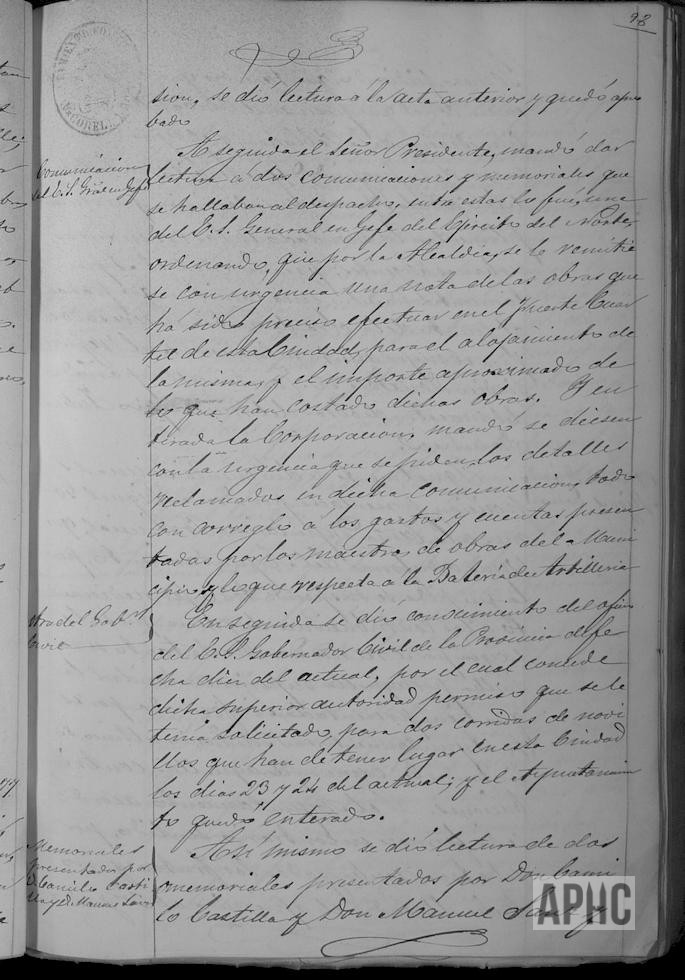 98
sion, se dió lectura á la acta anterior y quedó apro
bado
Comunicacion
del E. S. Gral en Gefe
A seguida el Señor Presidente, mandó dar
lectura á dos comunicaciones y memoriales que
se hallaban al despacho, entre estas lo fué, una
del E. S. General en Gefe del Ejercito del Norte,
ordenando, que por la Alcaldia, se le remitie
se con urgencia una nota de las obras que
há sido preciso efectuar en el Fuerte Cuar
tel de esta Ciudad, para el alojamiento de
la misma, y el importe aproximado de
lo que han costado dichas obras. Y en
terada la Corporacion, mandó se diesen
con la urgencia que se piden, los detalles
reclamados en dicha comunicacion, todo
con correglo á los gastos y cuentas presen
tadas por los maestros de obras del Muni
cipio y lo que respecta a la Bateria de Artilleria
otra del Gobr
Civil
En seguida se dió conocimiento del oficio
del E. S. Gobernador Civil de la Provincia de fe
cha diez del actual, por el cual concede
dicha superior autoridad permiso que se le
tenia solicitado, para dos corridas de novi
llos que han de tener lugar en esta Ciudad
los dias 23 y 24 del actual; y el Ayuntamien
to quedó enterado.
Memoriales
presentados por
D. Camilo Casti
lla y D. Manuel
Asi mismo se dió lectura de dos
memoriales presentados por Don Cami
lo Castilla y Don Manuel y
APHC